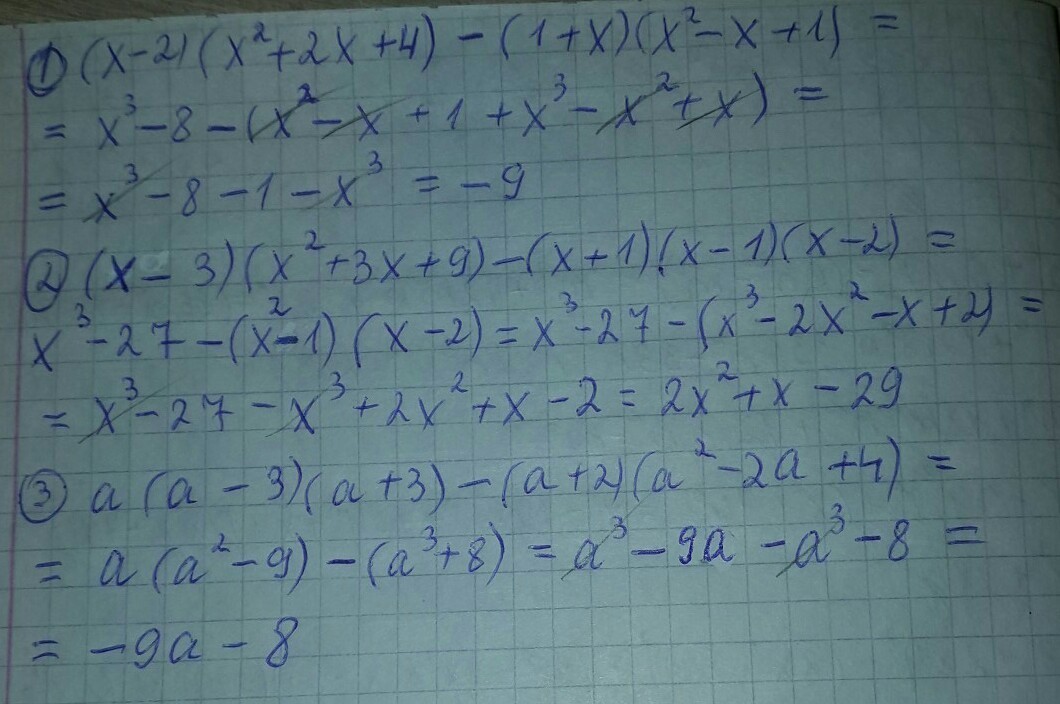 ① (x-2)(x²+2x+4) - (1+x)(x²-x+1) =
= x³-8-(x²-x+1+x³-x²+x) =
= x³-8-1-x³ = -9
② (x-3)(x²+3x+9)-(x+1)(x-1)(x-2) =
x³-27-(x²-1)(x-2) = x³-27-(x³-2x²-x+2) =
= x³-27-x³+2x²+x-2 = 2x²+x-29
③ a(a-3)(a+3)-(a+2)(a²-2a+4) =
= a(a²-9)-(a³+8) = a³-9a-a³-8 =
= -9a-8